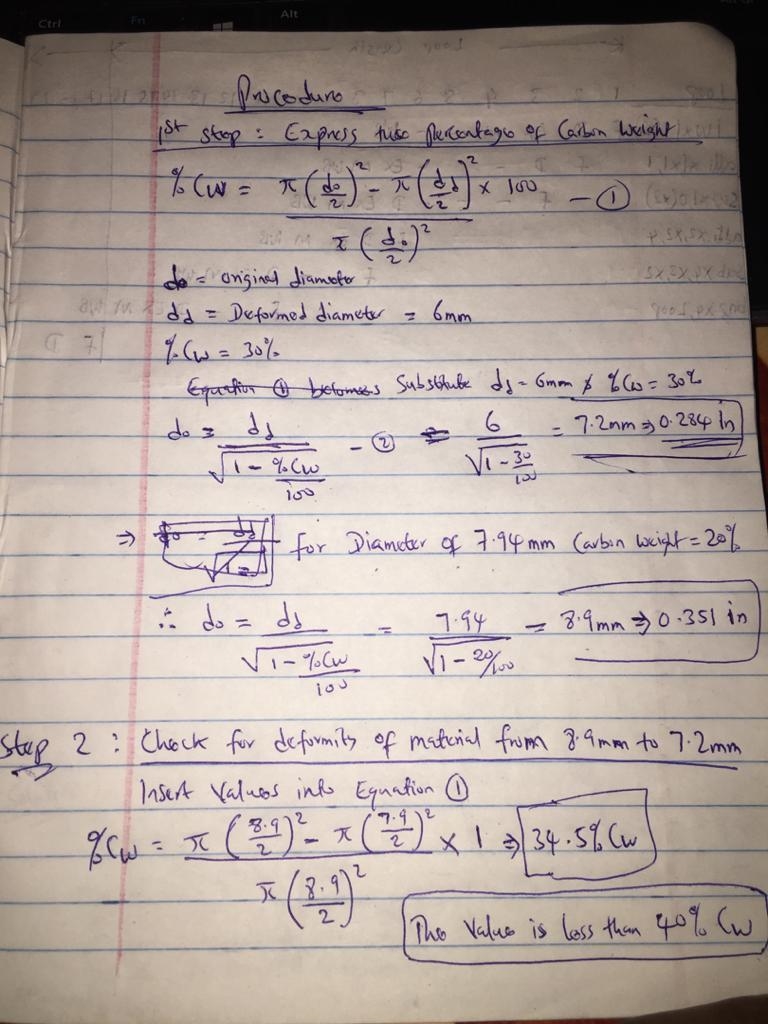 Ctrl Fn Alt
Procedure
1st step : Express the Percentage of Carbon Weight
% CW = π (do/2)² - π (dd/2)² × 100 / π (do/2)² - ①
do = original diameter
dd = Deformed diameter = 6mm
% CW = 30%
Equation ① becomes Substitute dd = 6mm & % CW = 30%
do = dd / √(1 - %CW/100) - ② = 6 / √(1 - 30/100) = 7.2mm ⇒ 0.284 in
⇒ for Diameter of 7.94mm Carbon weight = 20%
∴ do = dd / √(1 - %CW/100) = 7.94 / √(1 - 20/100) = 8.9mm ⇒ 0.351 in
Step 2 : Check for deformity of material from 8.9mm to 7.2mm
Insert Values into Equation ①
%CW = π (8.9/2)² - π (7.9/2)² × 1 / π (8.9/2)² ⇒ 34.5% CW
The Value is less than 40% CW